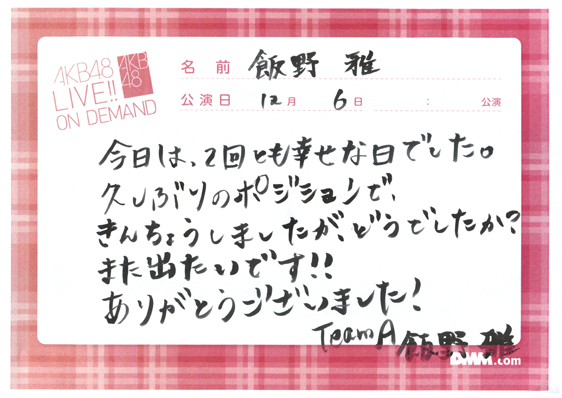 AKB48
LIVE!!
ON DEMAND
AKB
48
名前 飯野 雅
公演日 12月 6日 : 公演
今日は、2回とも幸せな日でした。
久しぶりのポジションで、
きんちょうしましたが、どうでしたか?
また出たいです!!
ありがとうございました!
Team A 飯野 雅
DMM.com